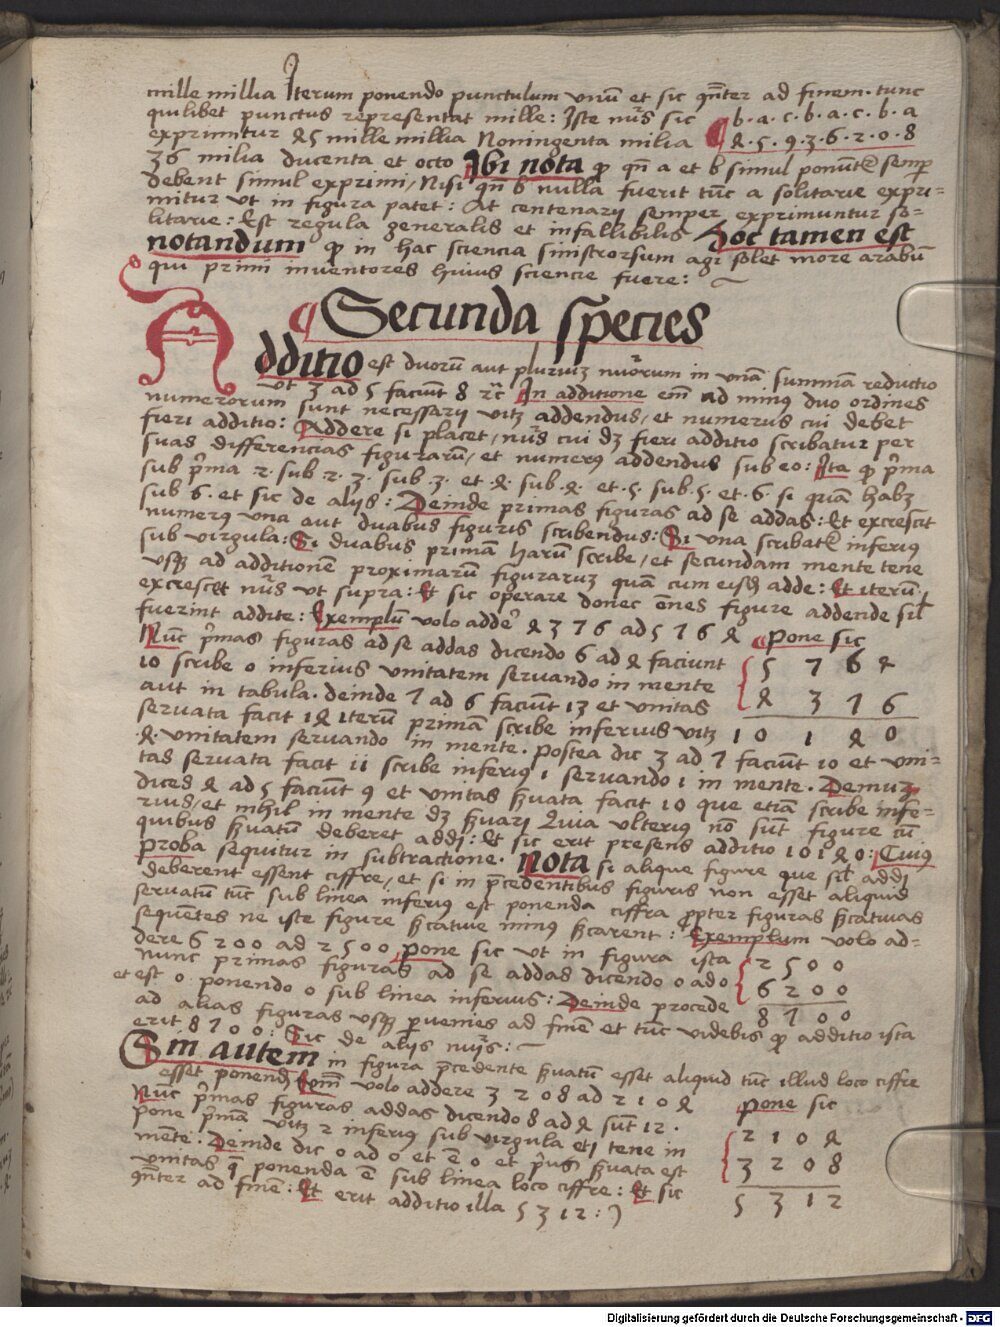 mille millia Iterum ponendo punctulum unū et sic qn̄ter ad finem · tunc
quilibet punctus representat mille : Iste nūs sic b · a · c · b · a · c · b · a
exprimitur 45 mille millia Noningenta milia 4 · 5 · 9 · 3 · 6 · 2 · 0 · 8
36 milia ducenta et octo Ibi nota qp qn̄ a et b simul ponūt~ semp
debent simul exprimi / Nisi qn̄ b nulla fuerit tūc a solitarie expri=
mitur ut in figura patet : At centenarij semper exprimuntur so=
litarie : Est regula generalis et infallibilis Hoc tamen est
notandum qp in hac sciencia sinistrorsum agi solet more arabū
qui primi inventores huius sciencie fuere :
Secunda species
Additio est duorū aut pluriuʒ nūorum in unā summam reductio
ut 3 ad 5 faciūt 8 rc̄ In additione em̄ ad minus duo ordines
numerorum sunt necessarij uitʒ addendus / et numerus cui debet
fieri additio : Addere si placet / nūs cui dʒ fieri additio scribatur per
suas differencias figurarū / et numerꝯ addendus sub eo : Ita qp p̄ma
sub p̄ma 2 · sub 2 · 3 · sub · 3 · et · 4 · sub · 4 · et · 5 · sub · 5 · et · 6 · si quā habʒ
sub 6 · et sic de alijs : Deinde primas figuras ad se addas : Et excrescēt
numerꝯ una aut duabus figuris scribendus : Si una scribat~ inferiꝯ
sub virgula : Si duabus primā harū scribe / et secundam mente tene
usqʒ ad additionē proximarū figuraruʒ quā cum eisdʒ adde : Et iterū
excrescet nūs ut supra : Et sic operare donec ōnes figure addende sil̄
fuerint addite : Exemplū volo addē 4 3 7 6 ad 5 7 6 4 Pone sic
Nūc p̄mas figuras ad se addas dicendo 6 ad 4 faciunt 5 7 6 4
10 scribe 0 inferius unitatem servando in mente 4 3 7 6
aut in tabula · deinde 7 ad 6 faciūt 13 et unitas
servata facit 14 iterū primam scribe inferius uitʒ 10 1 4 0
· 4 · unitatem servando in mente · postea dic 3 ad 7 faciūt 10 et uni=
tas servata facit 11 scribe inferiꝯ 1 servando 1 in mente · Demuʒ
dices 4 ad 5 faciūt 9 et unitas s̄vata facit 10 que etiā scribe infe=
rius / et nihil in mente dʒ s̄vari Quia ulterius nō sūt figure cū
quibus s̄vatū deberet addi : Et sic erit presens additio 10140 : Cuiꝯ
proba sequitur in subtractione · Nota si alique figure que sil̄ addi
deberent essent ciffre / et si in p̄cedentibus figuris non esset aliquid
servatū tūc sub linea inferiꝯ est ponenda ciffra p̄pter figuras s̄catiuas
sequētes ne iste figure s̄catiue minus s̄carent : Exemplum volo ad=
dere 6200 ad 2500 Pone sic ut in figura ista 2 5 0 0
nunc primas figuras ad se addas dicendo 0 ad 0 6 2 0 0
et est 0 ponendo 0 sub linea inferius : Deinde procede 8 7 0 0
ad alias figuras usqʒ p̄uenies ad finē et tūc videbis qp additio ista
erit 8700 : Sic de alijs nūis :
Sin autem in figura p̄cedente s̄vatū esset aliquid tūc illud loco ciffre
esset ponendʒ volo addere 3208 ad 2104
Nūc p̄mas figuras addas dicendo 8 ad 4 sūt 12 · Pone sic
pone p̄mā uitʒ 2 inferius sub virgula et 1 tene in 2 1 0 4
mēte : Deinde dic 0 ad 0 et ē 0 et p̄us s̄vata est 3 2 0 8
unitas q̄ ponenda ē sub linea loco ciffre : Et sic
qn̄ter ad finē : Et erit additio illa 5312 : 5 3 1 2
Digitalisierung gefördert durch die Deutsche Forschungsgemeinschaft - DFG